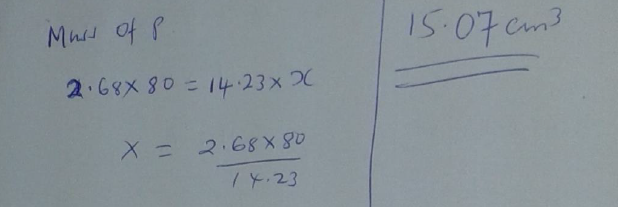 Mass of P
2.68 × 80 = 14.23 × x
x = 2.68 × 80
14.23
15.07 cm³